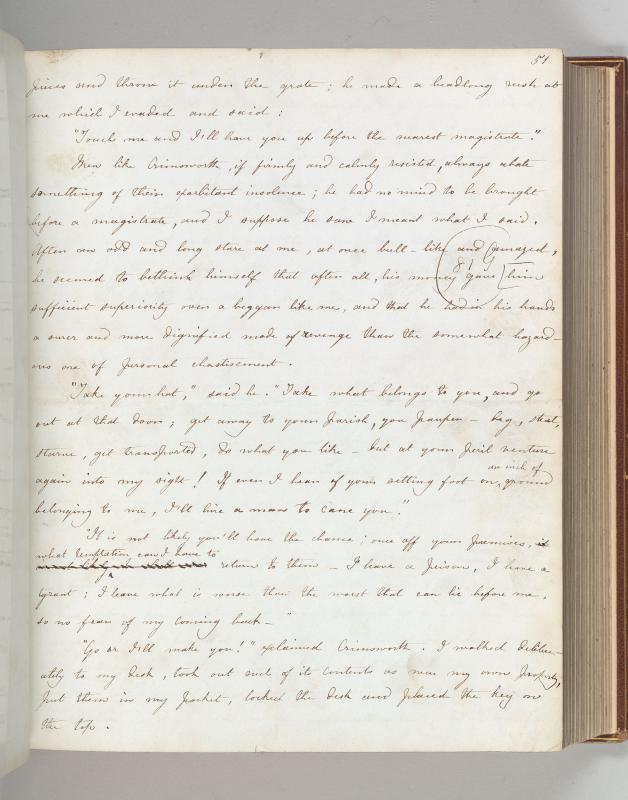 51
pieces and threw it under the grate ; he made a headlong rush at
me which I evaded and said :
"Touch me and I'll have you up before the nearest magistrate."
Men like Crimsworth, if firmly and calmly resisted, always abate
something of their exorbitant insolence ; he had no mind to be brought
before a magistrate, and I suppose he saw I meant what I said.
After an odd and long stare at me, at once bull-like and amazed,
he seemed to bethink himself that after all, his money gave him
sufficient superiority over a beggar like me, and that he had in his hands
a surer and more dignified mode of revenge than the somewhat hazard-
ous one of personal chastisement.
"Take your hat," said he. "Take what belongs to you, and go
out at that door ; get away to your parish, you pauper – beg, steal,
starve, get transported, do what you like – but at your peril venture
again into my sight! If ever I hear of your setting foot on an inch of ground
belonging to me, I'll hire a man to cane you."
"It is not likely you'll have the chance ; once off your premises,
what temptation can I have to return to them – I leave a prison, I leave a
tyrant ; I leave what is worse than the worst that can lie before me,
so no fear of my coming back – "
"Go or I'll make you!" exclaimed Crimsworth. I walked deliber-
ately to my desk, took out such of its contents as were my own property,
put them in my pocket, locked the desk and placed the key on
the top.